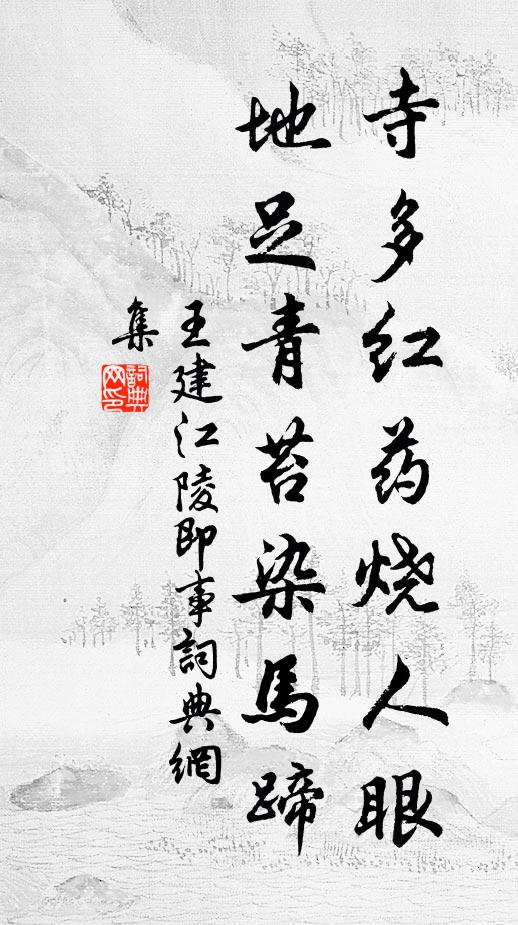 寺多红药烧人眼
地足青苔染馬蹄
王建江陵即事詞典網
集
詞典
网印